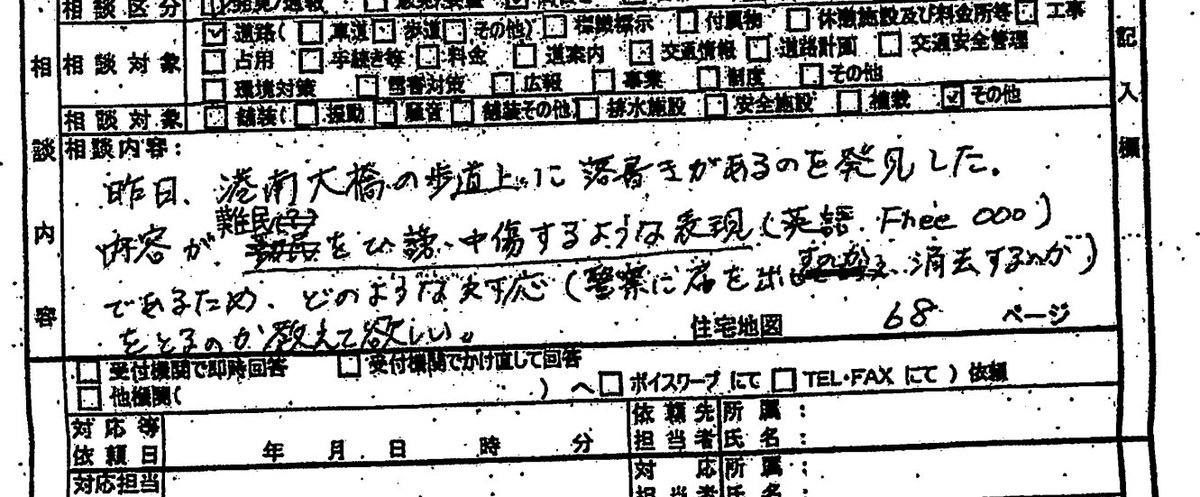 相談区分
相談対象 ☑道路(□車道□歩道□その他)□標識標示 □付属物 □休憩施設及び料金所等□工事
□占用 □手続き等□料金 □道案内 □交通情報□道路計画 □交通安全管理
□環境対策 □雪害対策 □広報 □事業 □制度 □その他
相談対象 □舗装(□振動□騒音□舗装その他)□排水施設 □安全施設□植栽 ☑その他
相談内容
記入欄
相談内容:
昨日、港南大橋の歩道上に落書きがあるのを発見した。
難民(?)
内容が をひ謗・中傷するような表現(英語 Free 〇〇〇)
であるため、どのような対応(警察に届を出すのか、消去するのか)
をとるのか教えて欲しい。
住宅地図 68 ページ
□受付機関で即時回答 □受付機関でかけ直して回答
□他機関( )へ□ボイスワープにて□TEL・FAXにて)依頼
対応等依頼日 年 月 日 時 分
依頼先担当者 所属:
氏名:
対応担当
対応担当者 所属:
氏名: